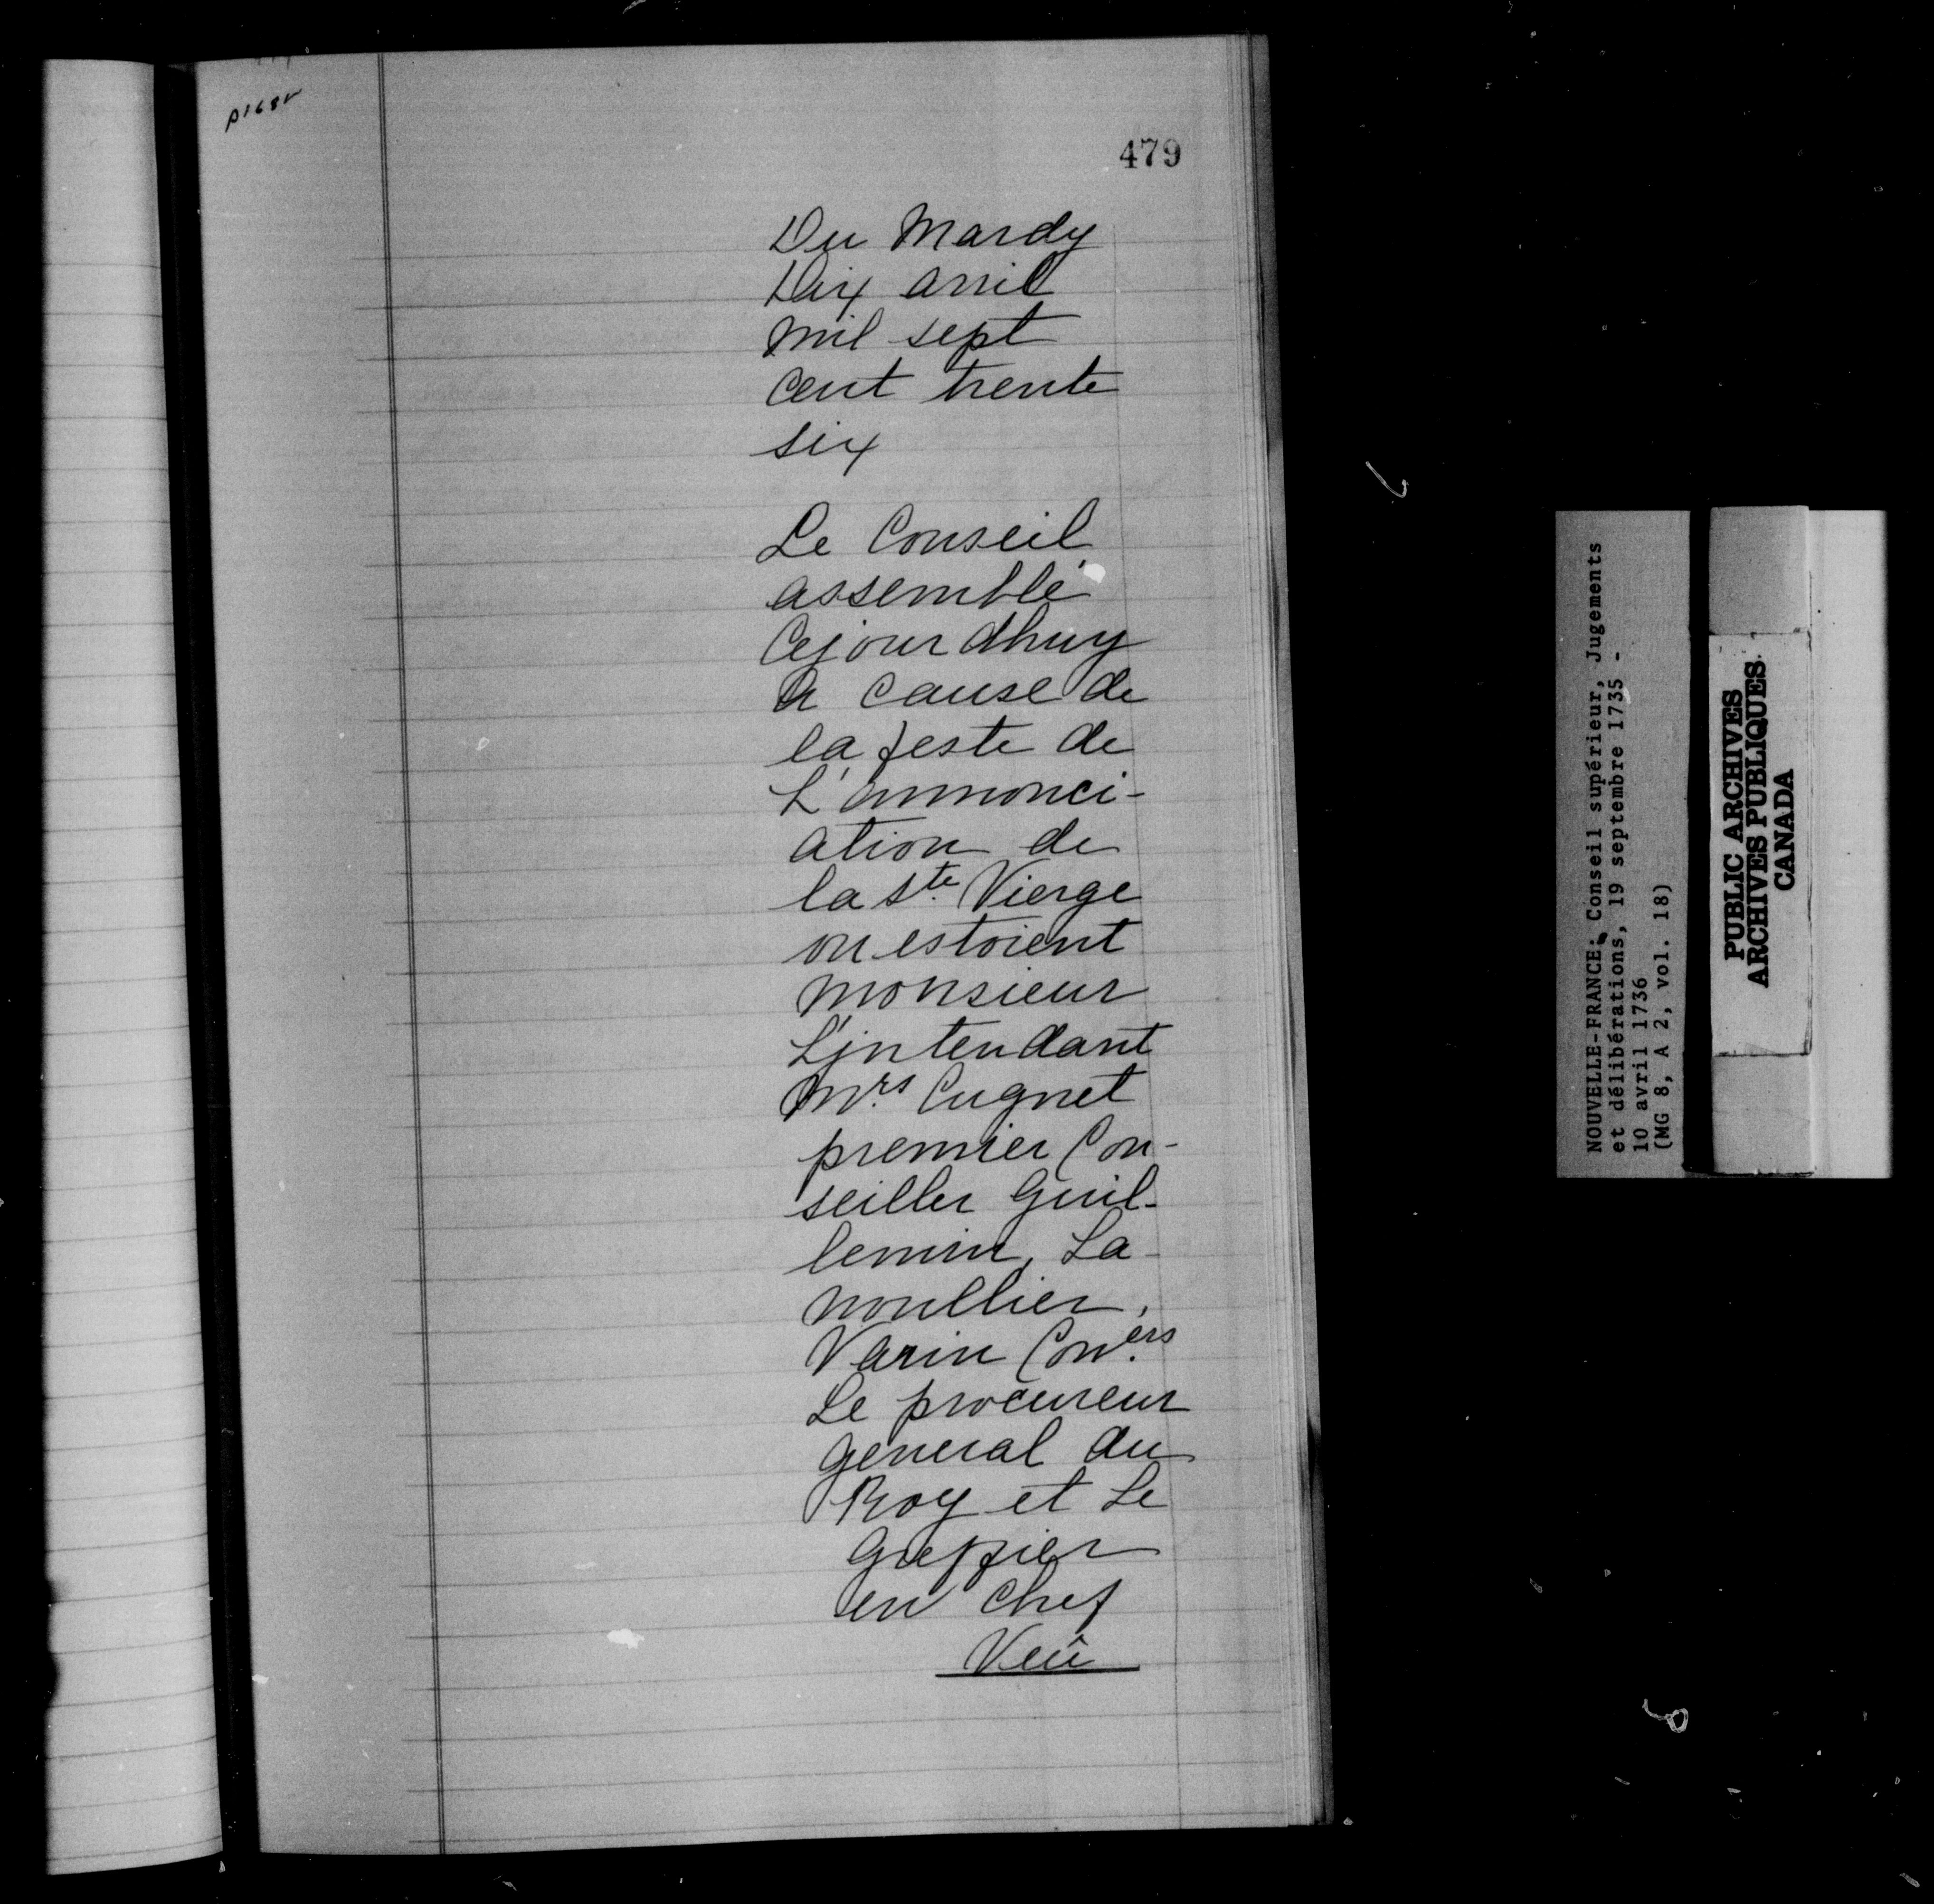 p168v
479
Du Mardy
Dix avril
mil sept
cent trente
six
Le Conseil
assemblé
Cejourdhuy
a cause de
la feste de
L'annonci-
ation de
la Ste. Vierge
ou estoient
Monsieur
L'jntendant
Mrs. Cugnet
premier Con-
seiller Guil-
lemin, La-
noullier,
Varin Coners.
Le procureur
general du
Roy et Le
Greffier
en chef
Veû
NOUVELLE-FRANCE: Conseil supérieur, Jugements
et délibérations, 19 septembre 1735 -
10 avril 1736
(MG 8, A 2, vol. 18)
PUBLIC ARCHIVES
ARCHIVES PUBLIQUES
CANADA